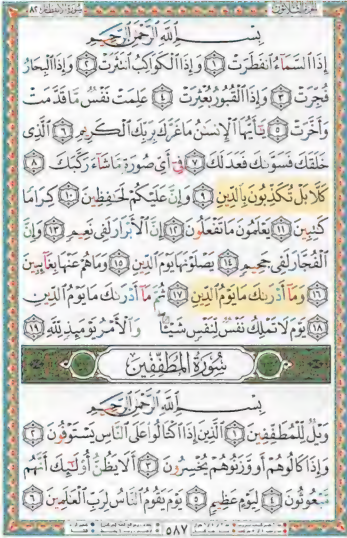 سُورَةُ الانفِطَار ٨٢ الجُزْءُ الثَّلَاثُونَ
بِسْمِ اللَّهِ الرَّحْمَٰنِ الرَّحِيمِ
إِذَا السَّمَاءُ انفَطَرَتْ ١ وَإِذَا الْكَوَاكِبُ انتَثَرَتْ ٢ وَإِذَا الْبِحَارُ
فُجِّرَتْ ٣ وَإِذَا الْقُبُورُ بُعْثِرَتْ ٤ عَلِمَتْ نَفْسٌ مَّا قَدَّمَتْ
وَأَخَّرَتْ ٥ يَٰٓأَيُّهَا الْإِنسَٰنُ مَا غَرَّكَ بِرَبِّكَ الْكَرِيمِ ٦ الَّذِي
خَلَقَكَ فَسَوَّىٰكَ فَعَدَلَكَ ٧ فِيٓ أَيِّ صُورَةٍ مَّا شَآءَ رَكَّبَكَ ٨
كَلَّا بَلْ تُكَذِّبُونَ بِالدِّينِ ٩ وَإِنَّ عَلَيْكُمْ لَحَٰفِظِينَ ١٠ كِرَامًا
كَٰتِبِينَ ١١ يَعْلَمُونَ مَا تَفْعَلُونَ ١٢ إِنَّ الْأَبْرَارَ لَفِي نَعِيمٍ ١٣ وَإِنَّ
الْفُجَّارَ لَفِي جَحِيمٍ ١٤ يَصْلَوْنَهَا يَوْمَ الدِّينِ ١٥ وَمَا هُمْ عَنْهَا بِغَآئِبِينَ
١٦ وَمَآ أَدْرَىٰكَ مَا يَوْمُ الدِّينِ ١٧ ثُمَّ مَآ أَدْرَىٰكَ مَا يَوْمُ الدِّينِ
١٨ يَوْمَ لَا تَمْلِكُ نَفْسٌ لِّنَفْسٍ شَيْـًٔا ۖ وَالْأَمْرُ يَوْمَئِذٍ لِّلَّهِ ١٩
سُورَةُ المُطَفِّفِينَ
بِسْمِ اللَّهِ الرَّحْمَٰنِ الرَّحِيمِ
وَيْلٌ لِّلْمُطَفِّفِينَ ١ الَّذِينَ إِذَا اكْتَالُوا عَلَى النَّاسِ يَسْتَوْفُونَ ٢
وَإِذَا كَالُوهُمْ أَو وَّزَنُوهُمْ يُخْسِرُونَ ٣ أَلَا يَظُنُّ أُولَٰٓئِكَ أَنَّهُم
مَّبْعُوثُونَ ٤ لِيَوْمٍ عَظِيمٍ ٥ يَوْمَ يَقُومُ النَّاسُ لِرَبِّ الْعَٰلَمِينَ ٦
٥٨٧